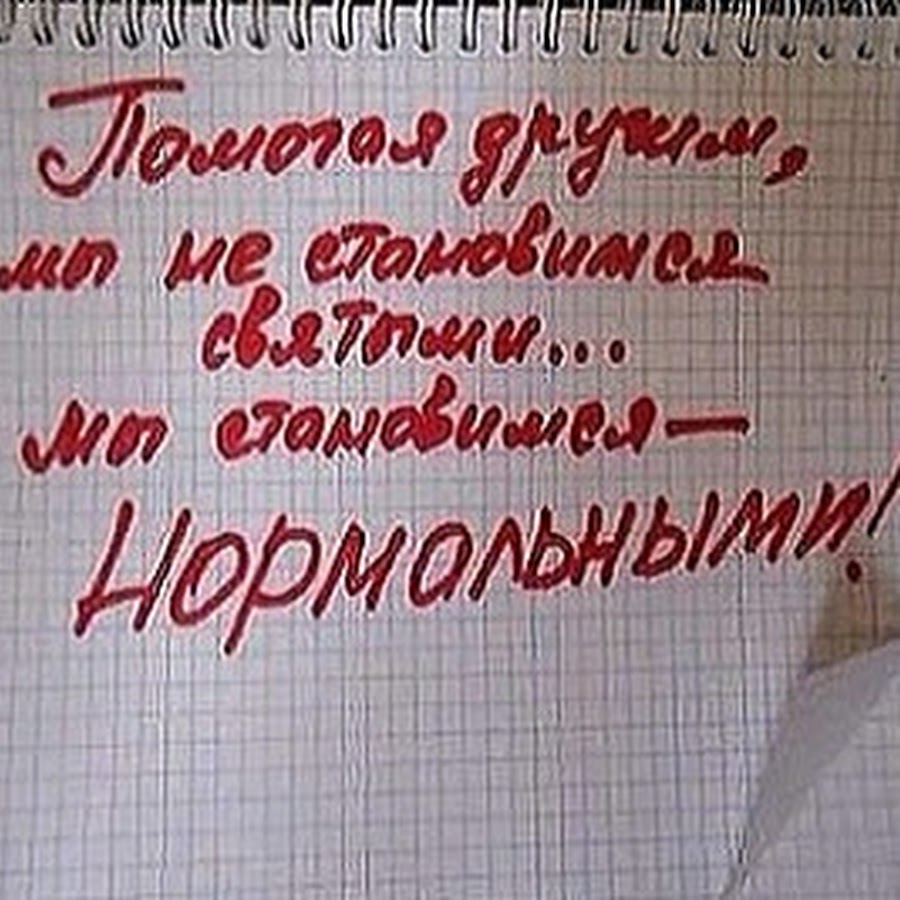 Помогая другим,
мы не становимся
святыми...
мы становимся —
Нормальными!